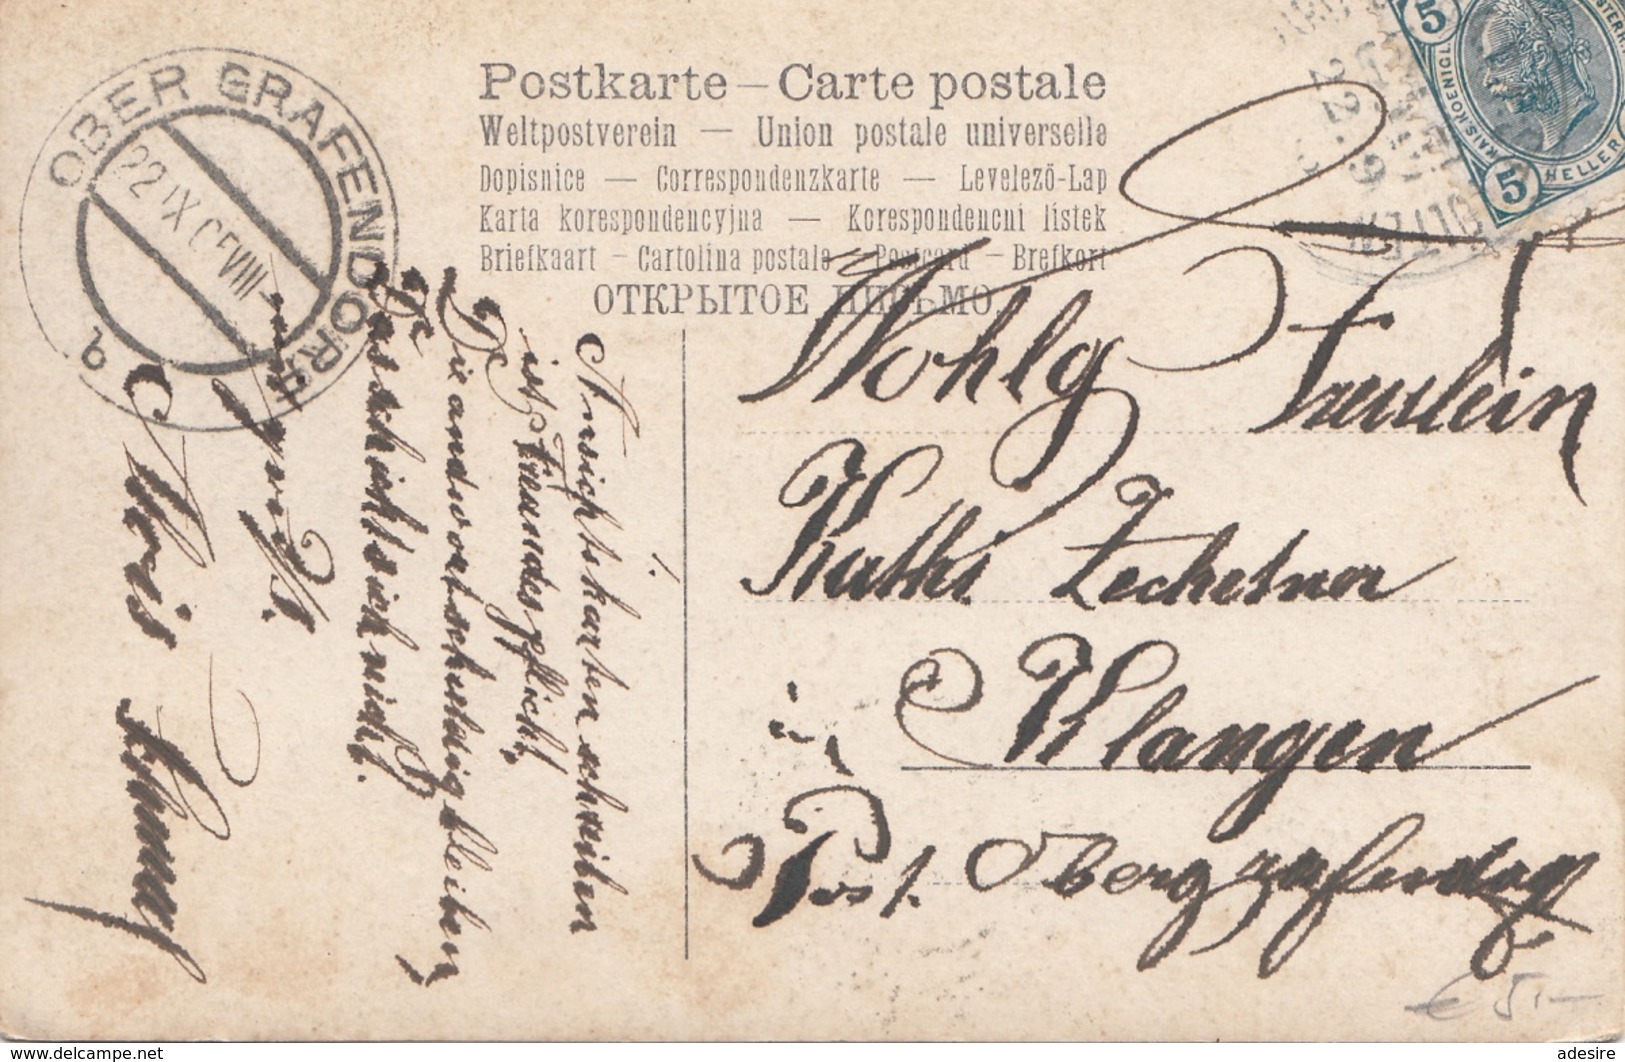 Postkarte – Carte postale
Weltpostverein — Union postale universelle
Dopisnice — Correspondenzkarte — Levelező-Lap
Karta korespondencyjna — Korespondencni listek
Briefkaart – Cartolina postale – Postcard – Brefkort
ОТКРЫТОЕ ПИСЬМО.
OBER GRAFENDORF
22 IX
5 5
KAIS. KOENIGL.
HELLER
Wohlg Freulein
Kathi Zechetner
in Klangen
Post. Obergrafendorf
Ansichtskarten schreiben
ist Freundespflicht,
Die andword schuldig bleiben,
Das schickt sich nicht.
€ 5.–
www.delcampe.net
adesire